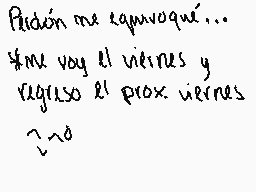 Perdón me equivoqué...
me voy el viernes y
regreso el prox. viernes